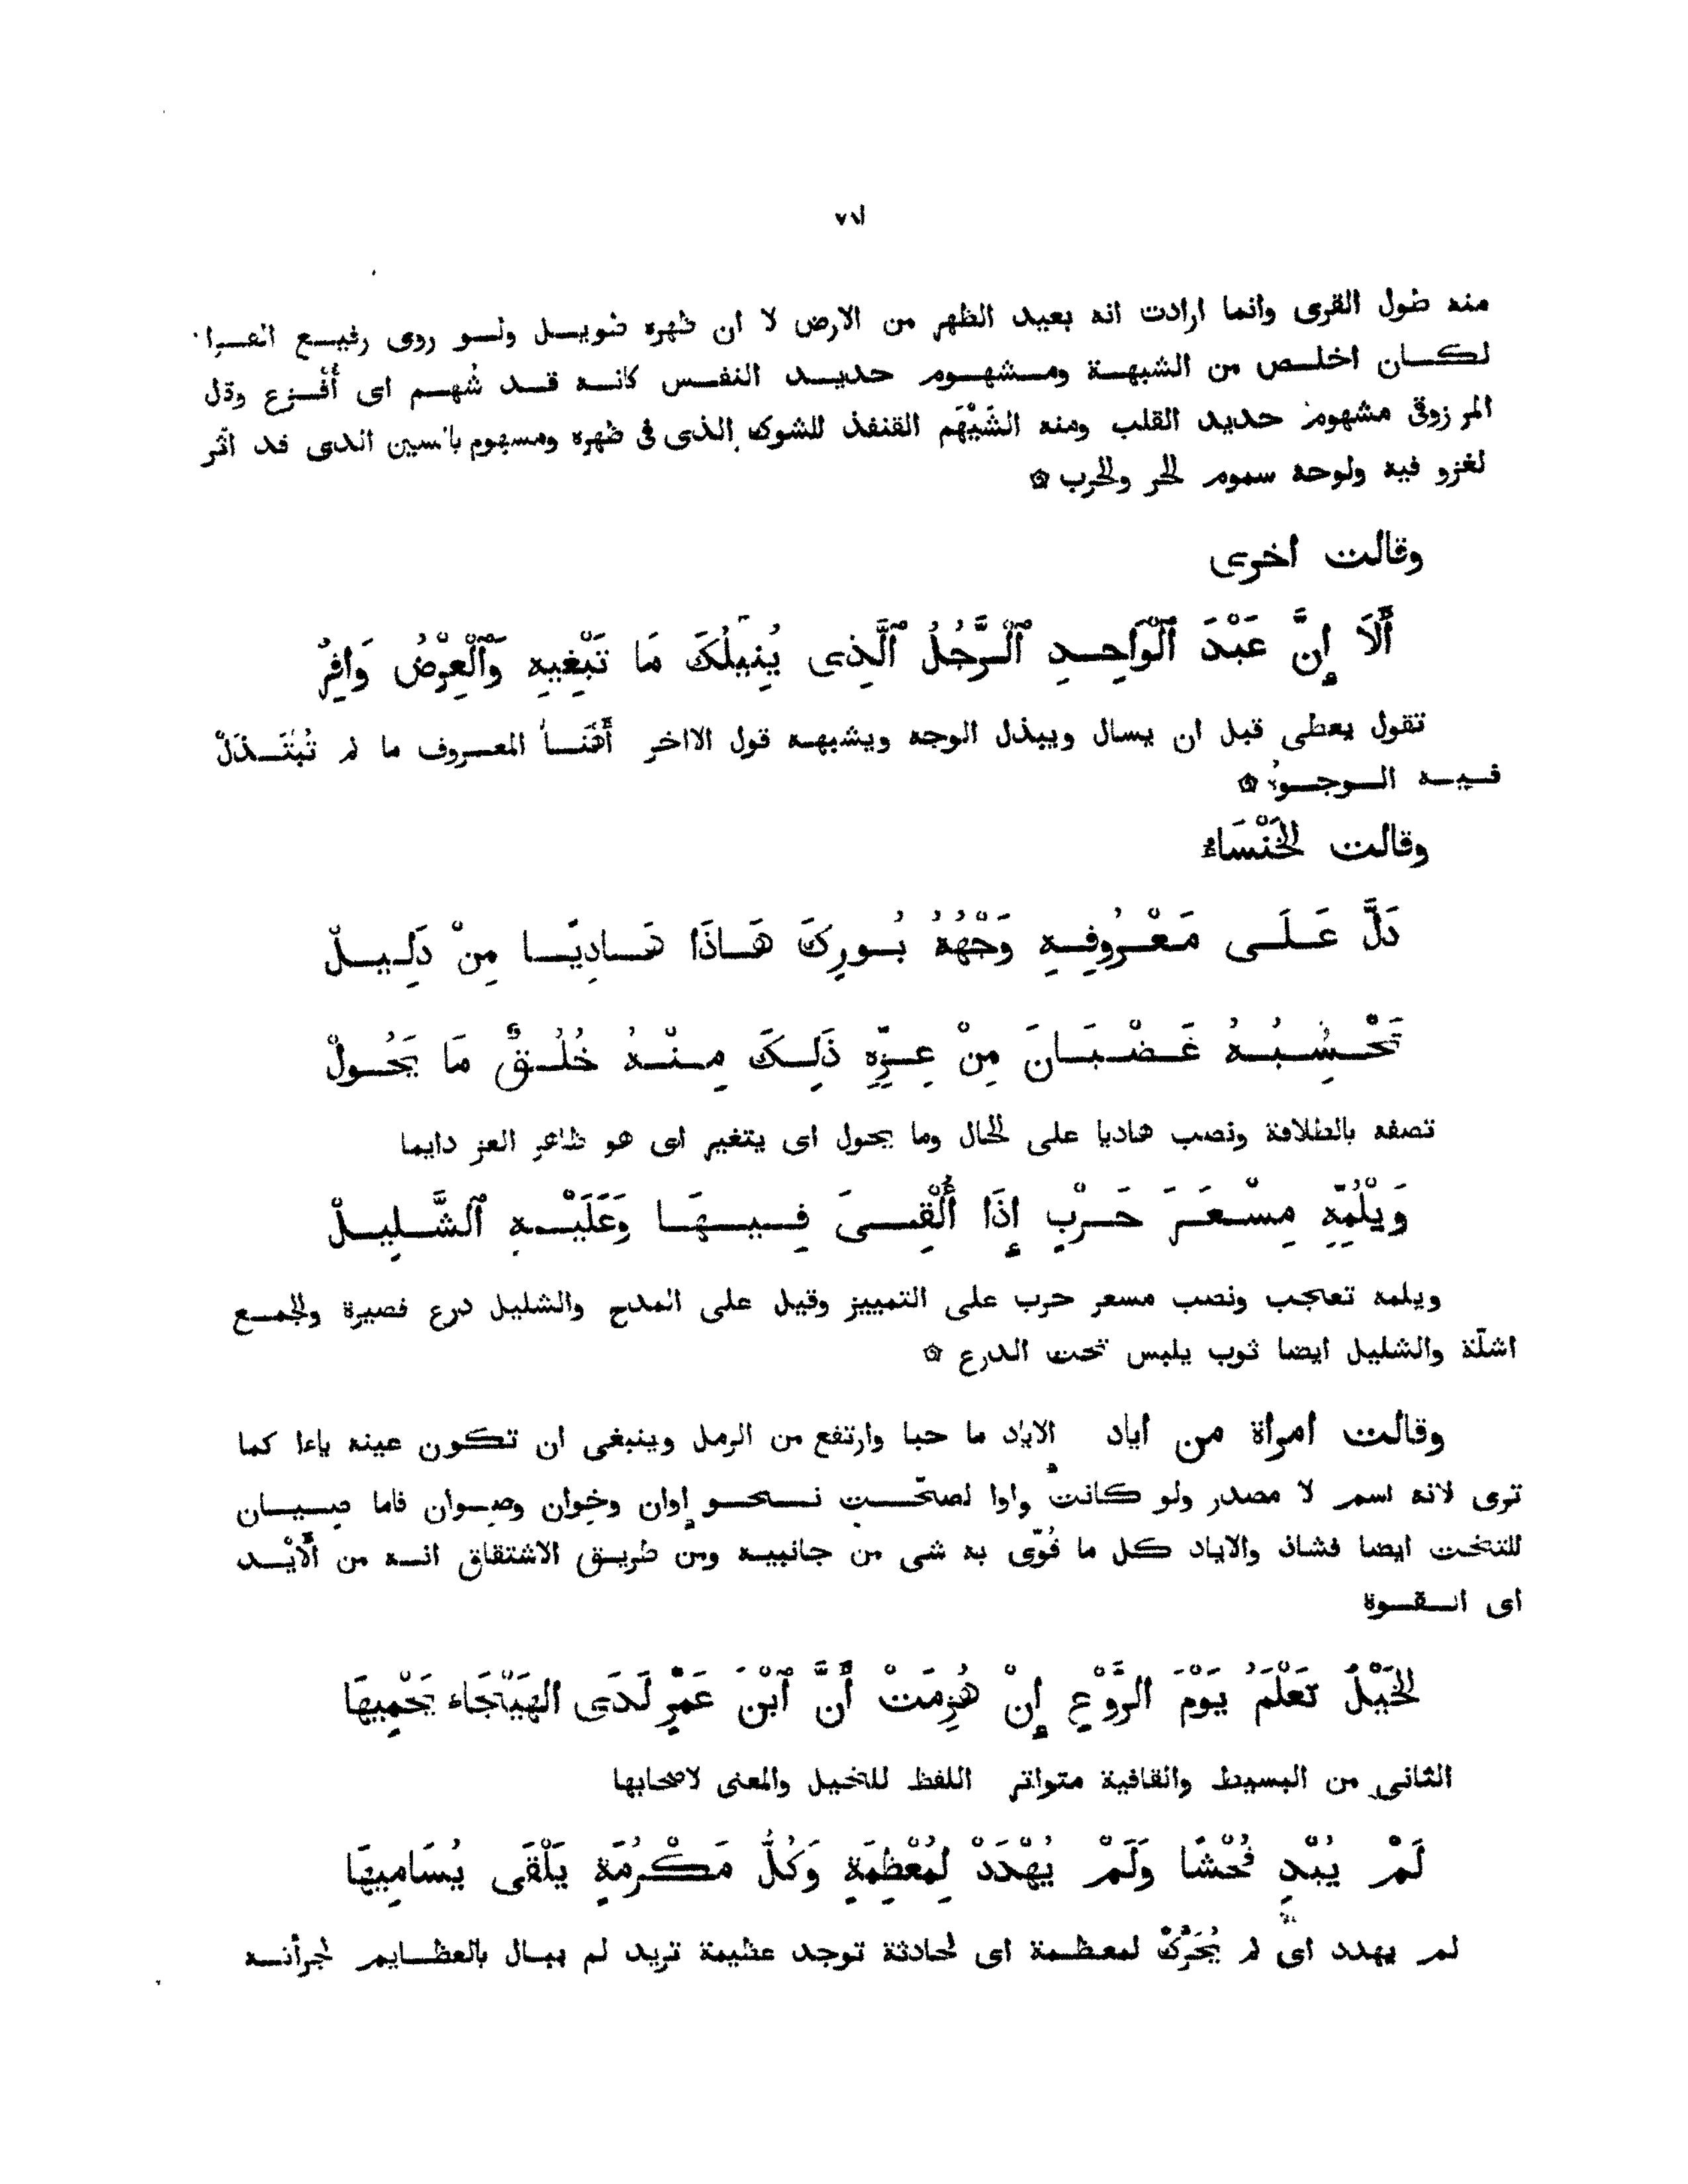 ٧٨١
منه طول القرى وانما ارادت انه بعيد الظهر من الارض لا ان ظهره طويــل ولــو روى رفيــع القــرا
لكــان اخلــص من الشبهــة ومــشهــوم حديــد النفــس كانــه قــد شُهــم اى أُفْــزع وقال
المرزوق مشهوم حديد القلب ومنه الشَيْهَم القنفذ للشوك الذى فى ظهره ومسهوم بالسين الذى قد اثر
لغزو فيه ولوحه سموم الحر والحرب ۞
وقالت اخرى
أَلَا إِنَّ عَبْدَ ٱلْوَاحِــدِ ٱلــرَّجُلُ ٱلَّذِى يُنِيلُكَ مَا تَبْغِيهِ وَٱلْعِرْضُ وَافِرُ
تقول يعطى قبل ان يسال ويبذل الوجه ويشبهــه قول الااخر أَهْنَــأُ المعــروف ما لم تُبْتَــذَلْ
فــيــه الــوجــوهُ ۞
وقالت الخَنْسَاءُ
دَلَّ عَــلَــى مَــعْــرُوفِــهِ وَجْهُهُ بُــورِكَ هَــاذَا هَــادِيًــا مِنْ دَلِــيــلْ
تَحْــسِــبُــهُ غَــضْــبَــانَ مِنْ عِــزِّهِ ذَلِــكَ مِــنْــهُ خُلُــقٌ مَا يَحُــولْ
تصفه بالطلاقة ونصب هاديا على الحال وما يحول اى يتغير اى هو ظاهر العز دايما
وَيْلُمِّهِ مِسْــعَــرَ حَــرْبٍ إِذَا أُلْقِــىَ فِــيــهَــا وَعَلَيْــهِ ٱلشَّــلِيــلْ
ويلمه تعجب ونصب مسعر حرب على التمييز وقيل على المدح والشليل درع قصيرة والجمــع
اشلّة والشليل ايضا ثوب يلبس تحت الدرع ۞
وقالت امراة من اياد الاياد ما حبا وارتفع من الرمل وينبغى ان تكون عينه ياءا كما
ترى لانه اسم لا مصدر ولو كانت واوا لصحّــت نــحــو إوان وخوان وصــوان فاما صــيــان
للتخت ايضا فشاذ والاياد كل ما قُوّى به شى من جانبيه ومن طريــق الاشتقاق انــه من ٱلأَيْــد
اى الــقــوة
الخَيْلُ تَعْلَمُ يَوْمَ الرَّوْعِ إِنْ هُزِمَتْ أَنَّ ٱبْنَ عَمْرٍ لَدَى الهَيْجَاء يَحْمِيهَا
الثانى من البسيط والقافية متواتر اللفظ للخيل والمعنى لاصحابها
لَمْ يُبْدِ فُحْشًا وَلَمْ يُهْدَدْ لِمُعْظِمَةٍ وَكُلُّ مَكْرُمَةٍ يَلْقَى يُسَامِيهَا
لم يهدد اى لم يُحَرَّكْ لمعظــمة اى لحادثة توجد عظيمة تريد لم يبــال بالعظــايم لجرأتــه